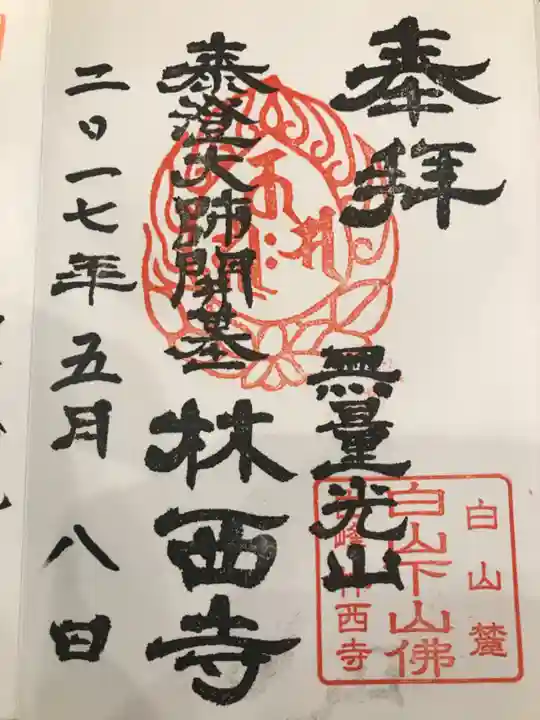 奉拝
無量光山
白山麓
白山下山佛
白峰林西寺
泰澄大師開基
林西寺
二〇一七年五月八日